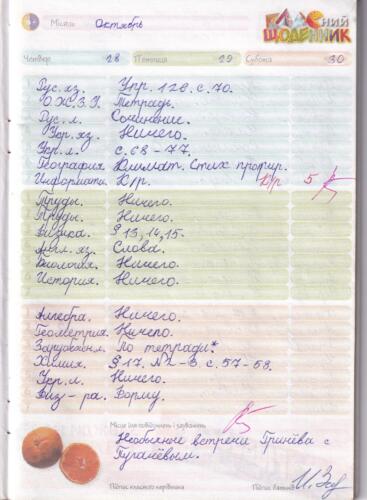 Місяць Октябрь
КЛАСний
ЩОДЕННИК
Четвер 28 П'ятниця 29 Субота 30
Рус. яз. Упр. 128. с. 70.
О.Ж.З.Ч. Тетрадь.
Рус. л. Сочинение.
Укр. яз. Ничего.
Укр. л. с. 68 - 77.
География. Климат. Стих
Информати. К/р. К/р 5
Труды. Ничего.
Труды. Ничего.
Физика. § 13, 14, 15.
Англ. яз. Слова.
Биология. Ничего.
История. Ничего.
Алгебра. Ничего.
Геометрия. Ничего.
По тетради*
Химия. § 17. №2-3. с. 57-58.
Укр. л. Ничего.
Физ-ра. Форму.
Місце для повідомлень і зауважень
встречи Гринёва с
Пугачёвым.
Підпис класного керівника Підпис батьків